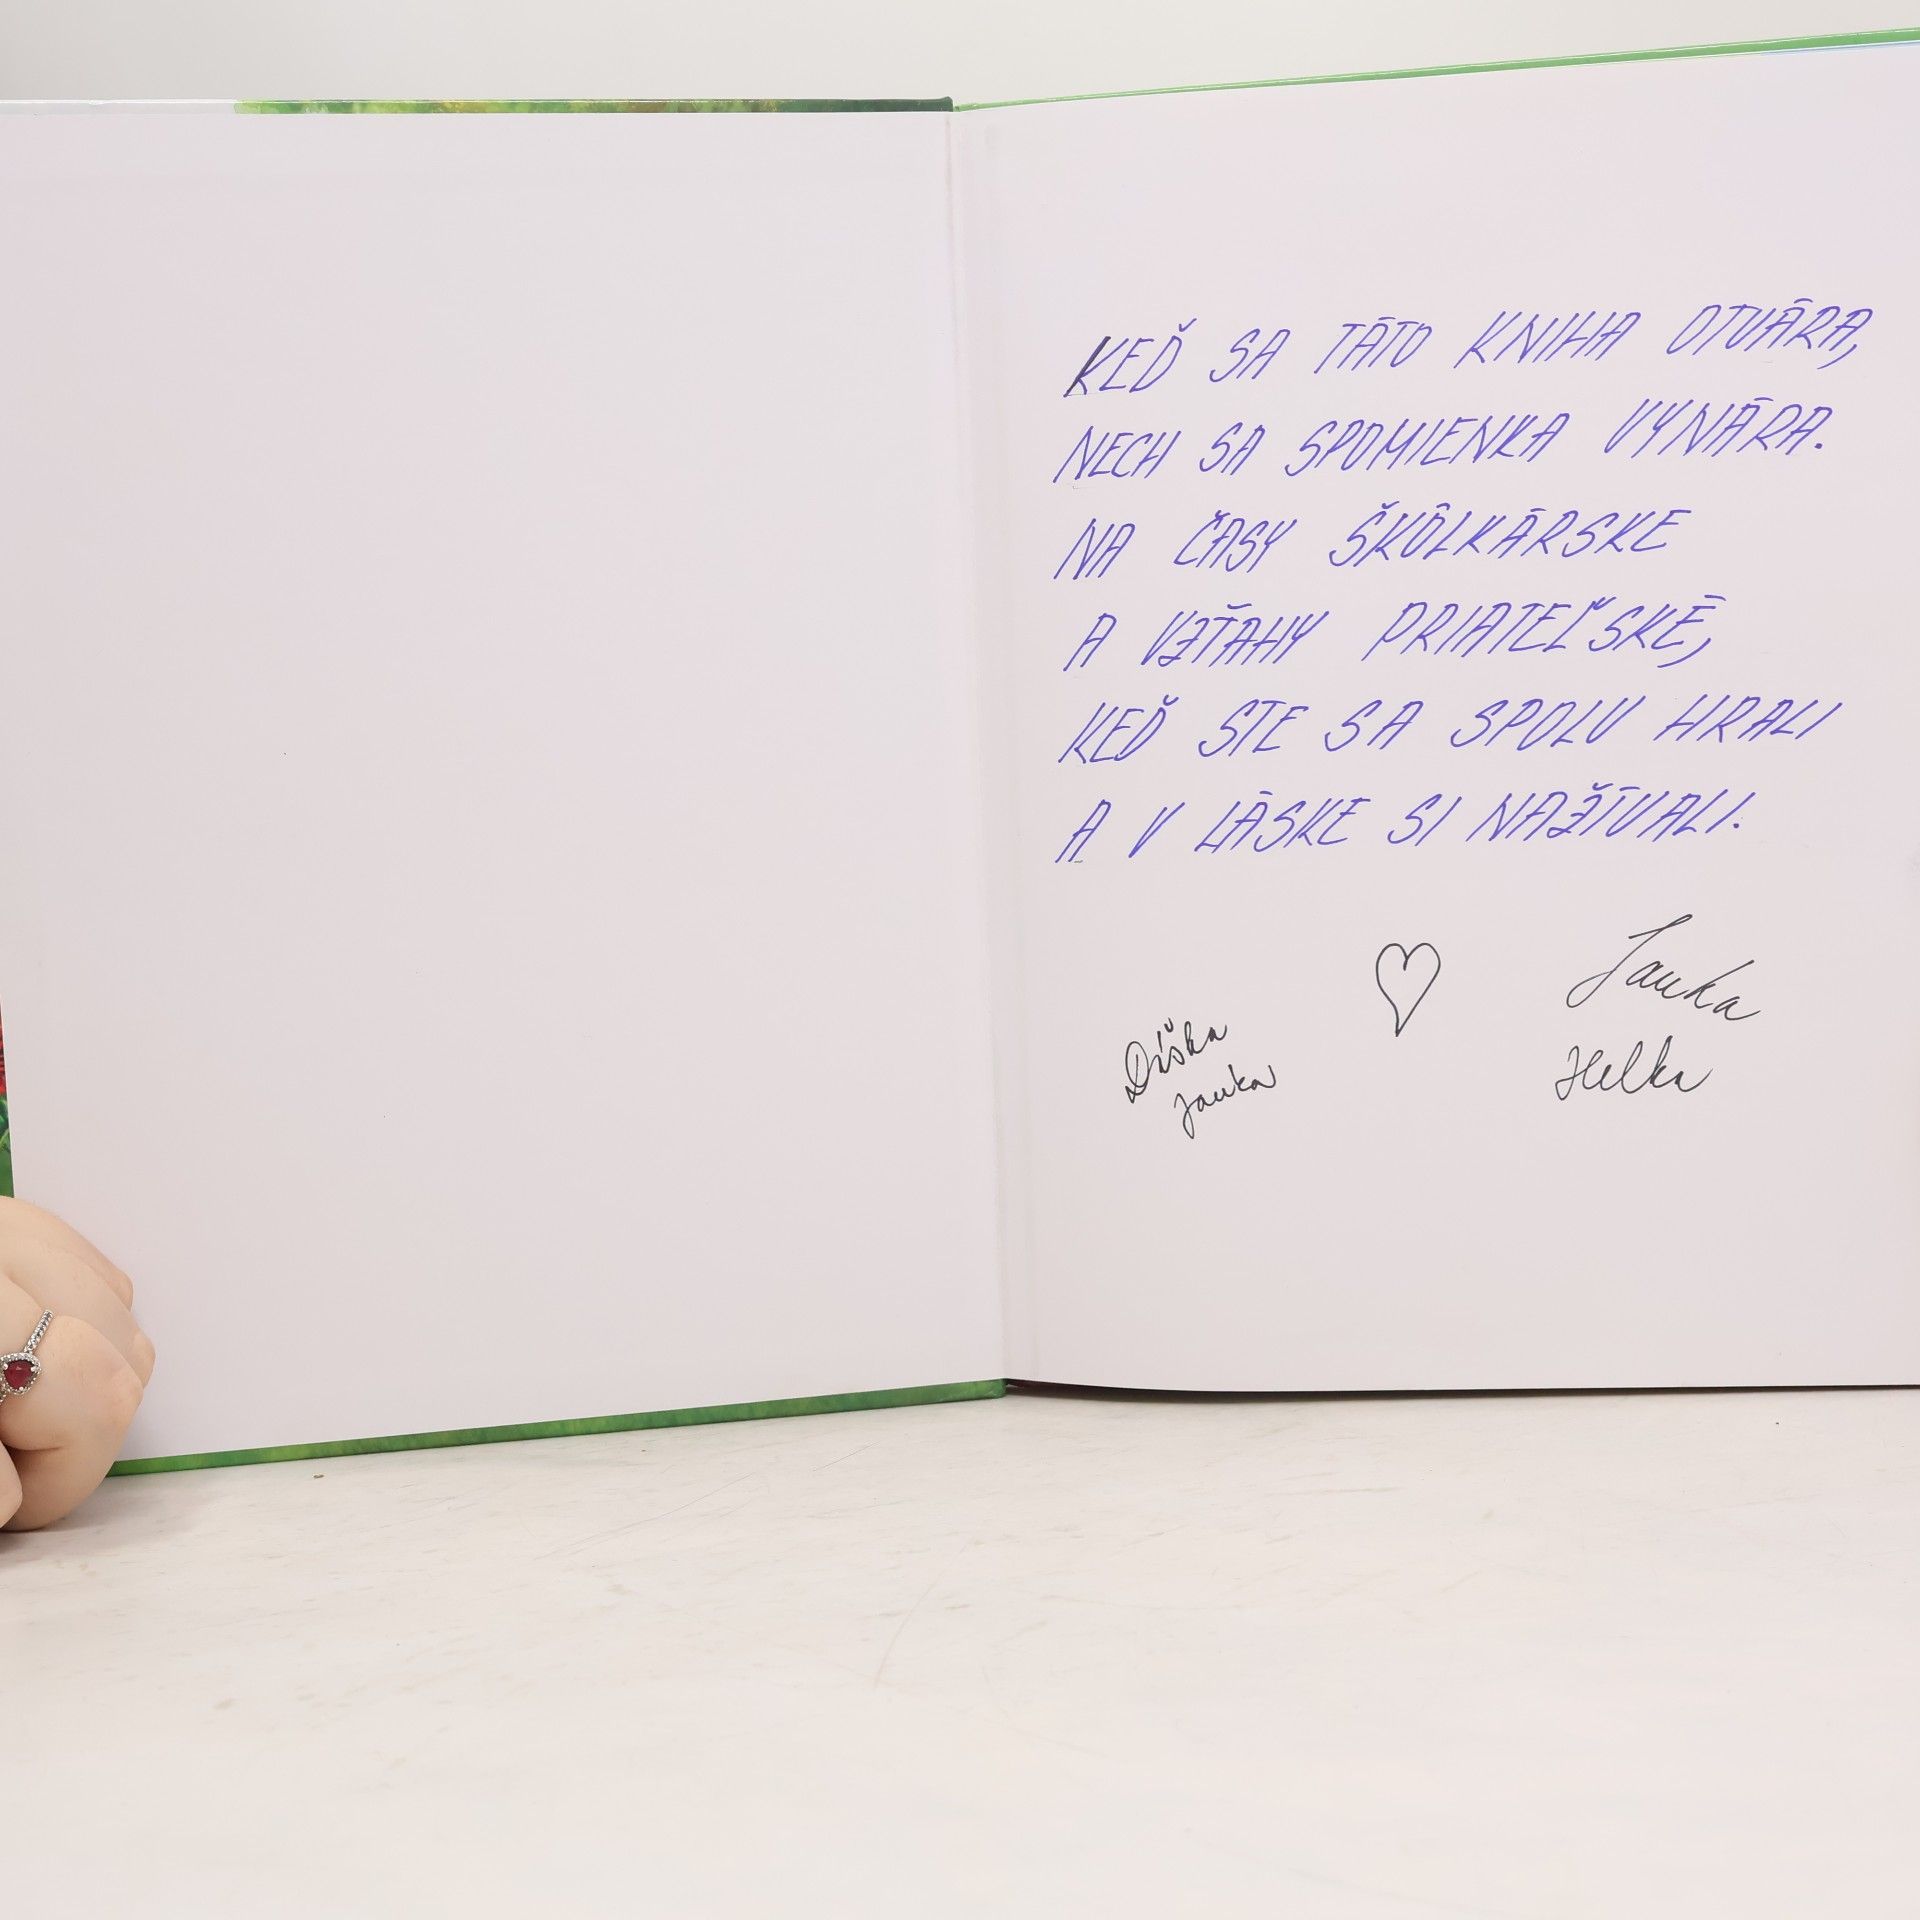 KEĎ SA TÁTO KNIHA OTVÁRA,
NECH SA SPOMIENKA VYNÁRA.
NA ČASY ŠKÔLKÁRSKE
A VZŤAHY PRIATEĽSKÉ,
KEĎ STE SA SPOLU HRALI
A V LÁSKE SI NAŽÍVALI.
Janka
Diška
Janka
Helka